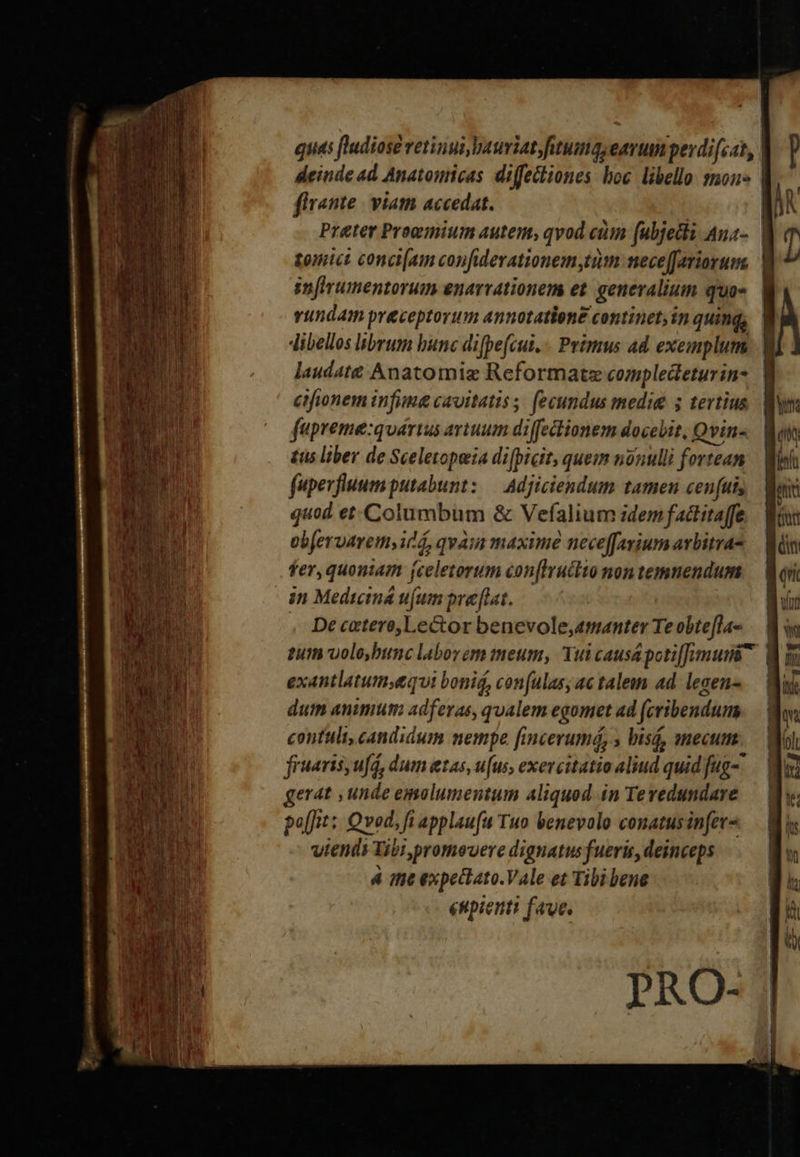 quas ſtudiosè retinui, hauriat, ſitumq́; earum perdiſcat,
deinde ad Anatomicas diſſectiones hoc libello mon-
ſtrante viam accedat.
Præter Proœmium autem, qvod cùm ſubjecti Ana-
tomici conciſam conſiderationem, tùm neceſſariorum
inſtrumentorum enarrationem et generalium quo-
rundam præceptorum annotationē continet, in quinq;
libellos librum hunc diſpeſcui. Primus ad exemplum
laudatæ Anatomiæ Reformatæ complectetur in-
ciſionem infimæ cavitatis; ſecundus mediæ; tertius
ſupremæ: quartus artuum diſſectionem docebit, Qvin-
tus liber de Sceletopœia diſpicit, quem nōnulli fortean
ſuperfluum putabunt: Adjiciendum tamen cenſui,
quod et Columbum & Veſalium idem factitaſſe
obſervarem, idq́, qvàm maximè neceſſarium arbitra-
rer, quoniam ſceletorum conſtructio non temnendum
in Medicinâ uſum præſtat.
De cætero, Lector benevole, amanter Te obteſta-
tum volo, hunc laborem meum, Tui causâ potiſſimum
exantlatum, æqui boniq́, conſulas, ac talem ad legen-
dum animum adferas, qualem egomet ad ſcribendum
contuli, candidum nempe ſincerumq́;, hisq́, mecum
fruaris, uſq́, dum ætas, uſus, exercitatio aliud quid ſug-
gerat, unde emolumentum aliquod in Te redundare
poſſit; Qvod, ſi applauſu Tuo benevolo conatus inſer-
viendi Tibi, promovere dignatus fueris, deinceps
à me expectato. Vale et Tibi bene
cupienti fave.
PRO-